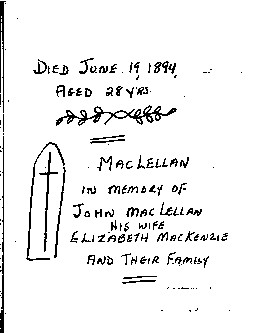 DIED JUNE 19, 1894
AGED 28 YRS
MACLELLAN
IN MEMORY OF
JOHN MACLELLAN
HIS WIFE
ELIZABETH MACKENZIE
AND THEIR FAMILY